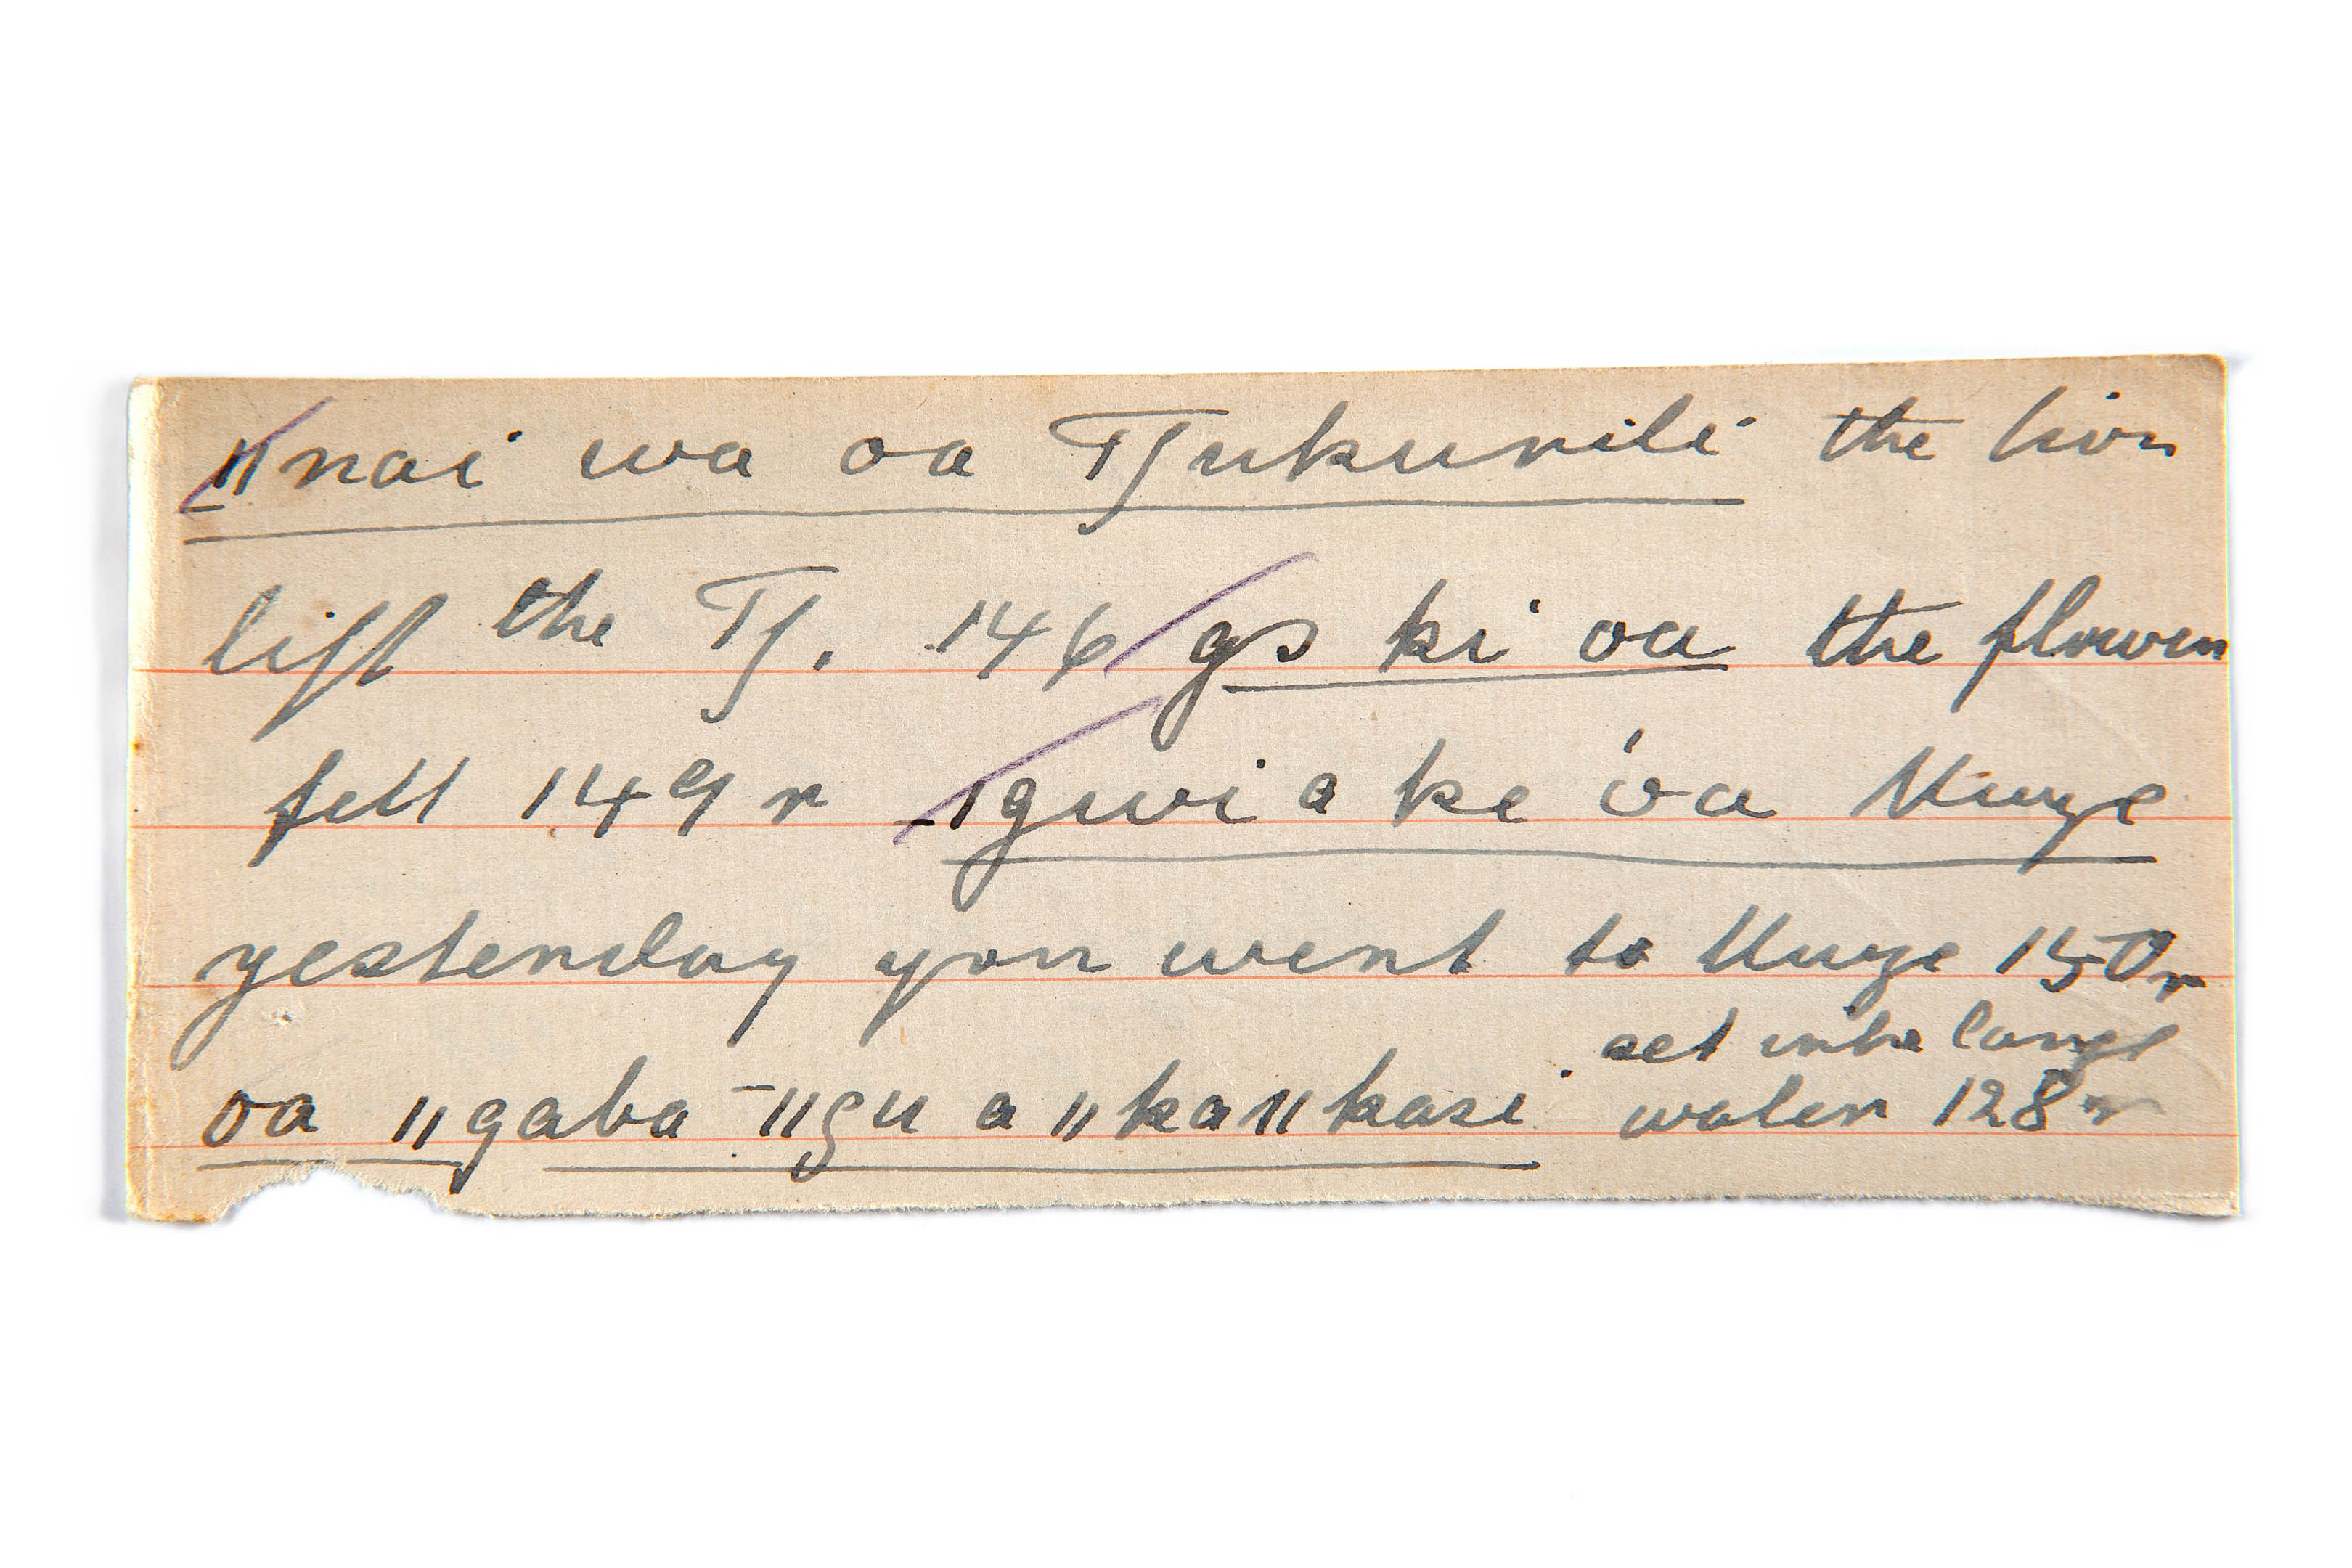 ǁnai wa oa Tjukurili the lion
left the Tj. 146 gǝ ki oa the flower
fell 149 r ǀgwi a ke 'oa Kuye
yesterday you went to Kuye 150 r
oa ǁgaba ǁgu a ǁkaǁkasi
water 128 r